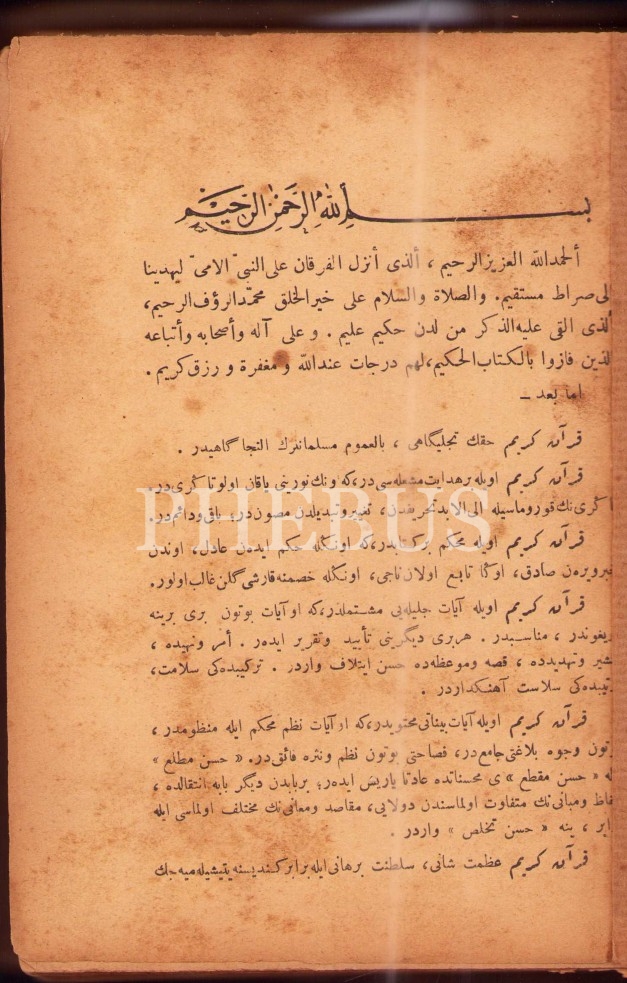 بسم الله الرحمن الرحيم
ألحمدالله العزيز الرحيم ، ألذى أنزل الفرقان على النبىّ الامىّ ليهدينا
الى صراط مستقيم. والصلاة والسلام على خيرالخلق محمد الرؤف الرحيم،
ألذى القى عليه الذكر من لدن حكيم عليم . و على آله وأصحابه وأتباعه
الذين فازوا بالكتاب الحكيم، لهم درجات عندالله و مغفرة و رزق كريم .
اما بعد —
قرآن كريم حقك تجليگاهى ، بالعموم مسلمانلرك التجاگاهيدر .
قرآن كريم اويله برهدايت مشعله سى در، كه ونك نورينى ياقان اولو تاكرى در.
تاكرى نك قوروماسيله الى الابد تحريفدن، تغيير وتبديلدن مصون در، باقى و دائم در.
قرآن كريم اويله محكم بركتابدر، كه اونكله حكم ايدەن عادل، اوندن
خبر ويرەن صادق، اوكا تابع اولان ناجى، اونكله خصمنه قارشى گلن غالب اولور.
قرآن كريم اويله آيات جليله يى مشتملدر، كه او آيات بوتون برى برينه
اويغوندر ، مناسبدر . هربرى ديگرينى تأييد وتقرير ايدەر . أمر ونهيده ،
تبشير وتهديدده ، قصه وموعظه ده حسن ايتلاف واردر . تركيبده كى سلامت،
ترتيبده كى سلاست آهنكداردر .
قرآن كريم اويله آيات بيناتى محتويدر، كه او آيات نظم محكم ايله منظومدر ،
بوتون وجوه بلاغتى جامع در، فصاحتى بوتون نظم ونثره فائق در. « حسن مطلع »
ايله « حسن مقطع » ى محسناتده عادتا ياريش ايدەر؛ بربابدن ديگر بابه انتقالده ،
الفاظ ومبانى نك متفاوت اولماسندن دولايى، مقاصد ومعانى نك مختلف اولماسى ايله
برابر ، ينه « حسن تخلص » واردر .
قرآن كريم عظمت شانى، سلطنت برهانى ايله برابر كنديسنه يتيشيله ميه جك
PHEBUS